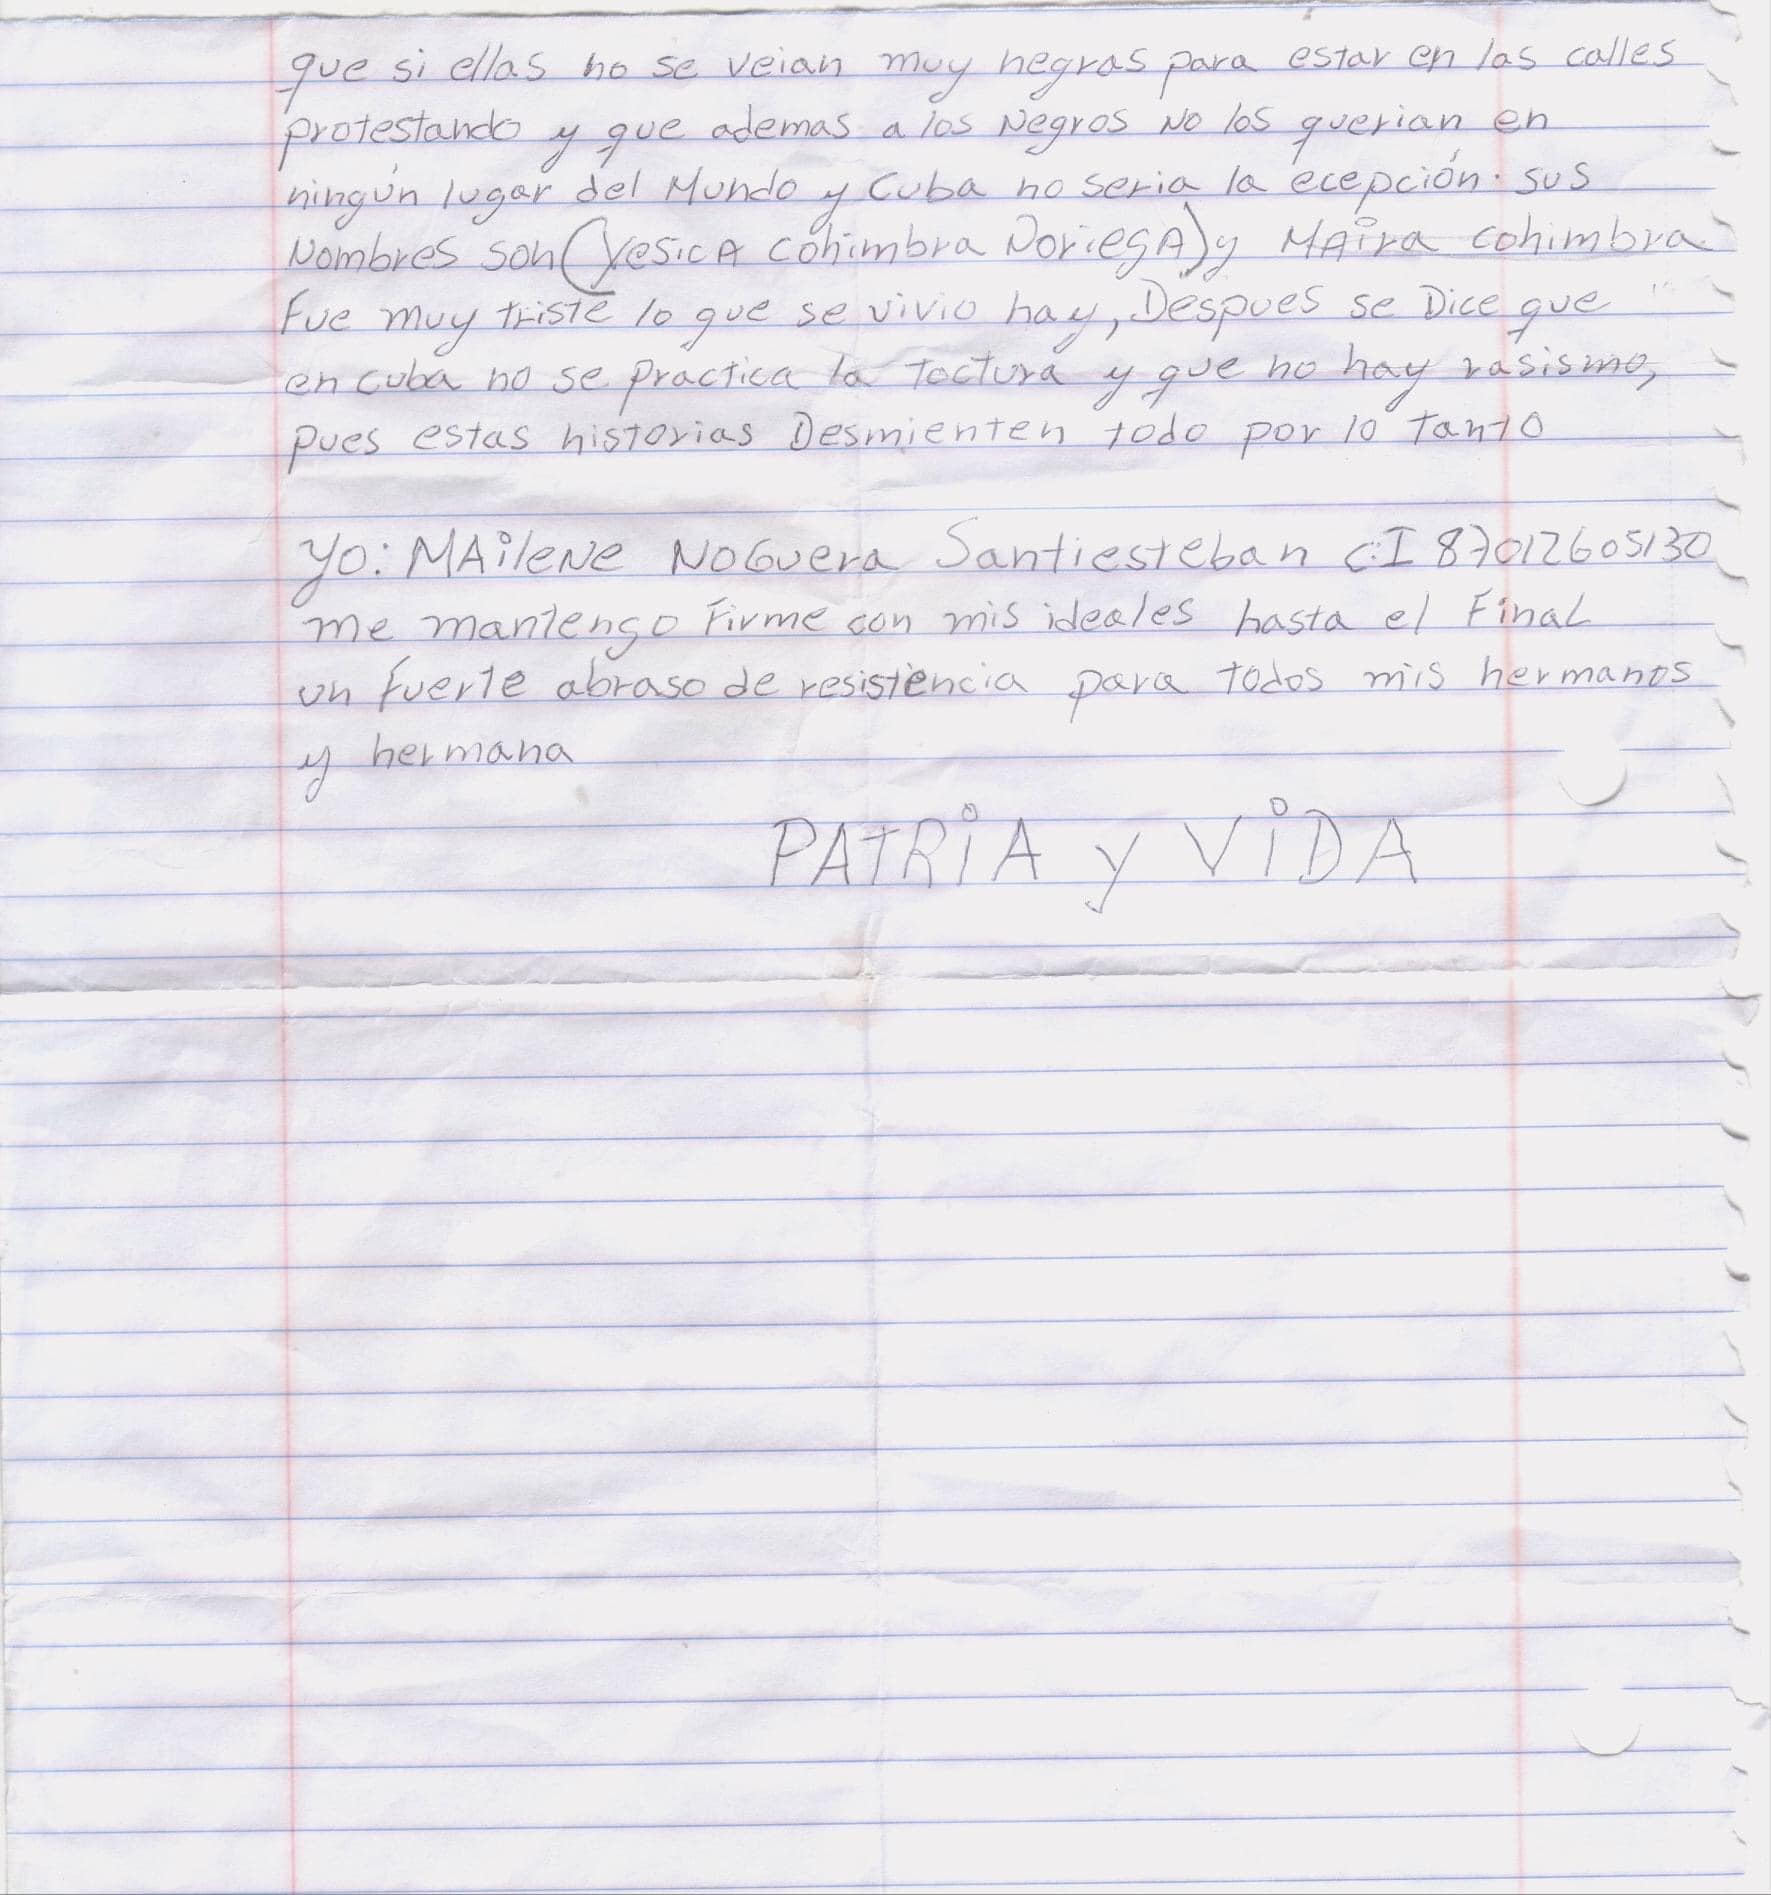 que si ellas no se veian muy negras para estar en las calles
protestando y que ademas a los Negros NO los querian en
ningún lugar del Mundo y Cuba no seria la ecepción. sus
Nombres son (Yesica Cohimbra Noriega) y MAira cohimbra.
Fue muy triste lo que se vivio hay, Despues se Dice que
en cuba no se practica la toctura y que no hay rasismo,
pues estas historias Desmienten todo por lo tanto
Yo: MAileNe NOGuera Santiesteban C.I 87012605130
me mantengo Firme con mis ideales hasta el Final
un fuerte abraso de resistencia para todos mis hermanos
y hermana
PATRiA y ViDA